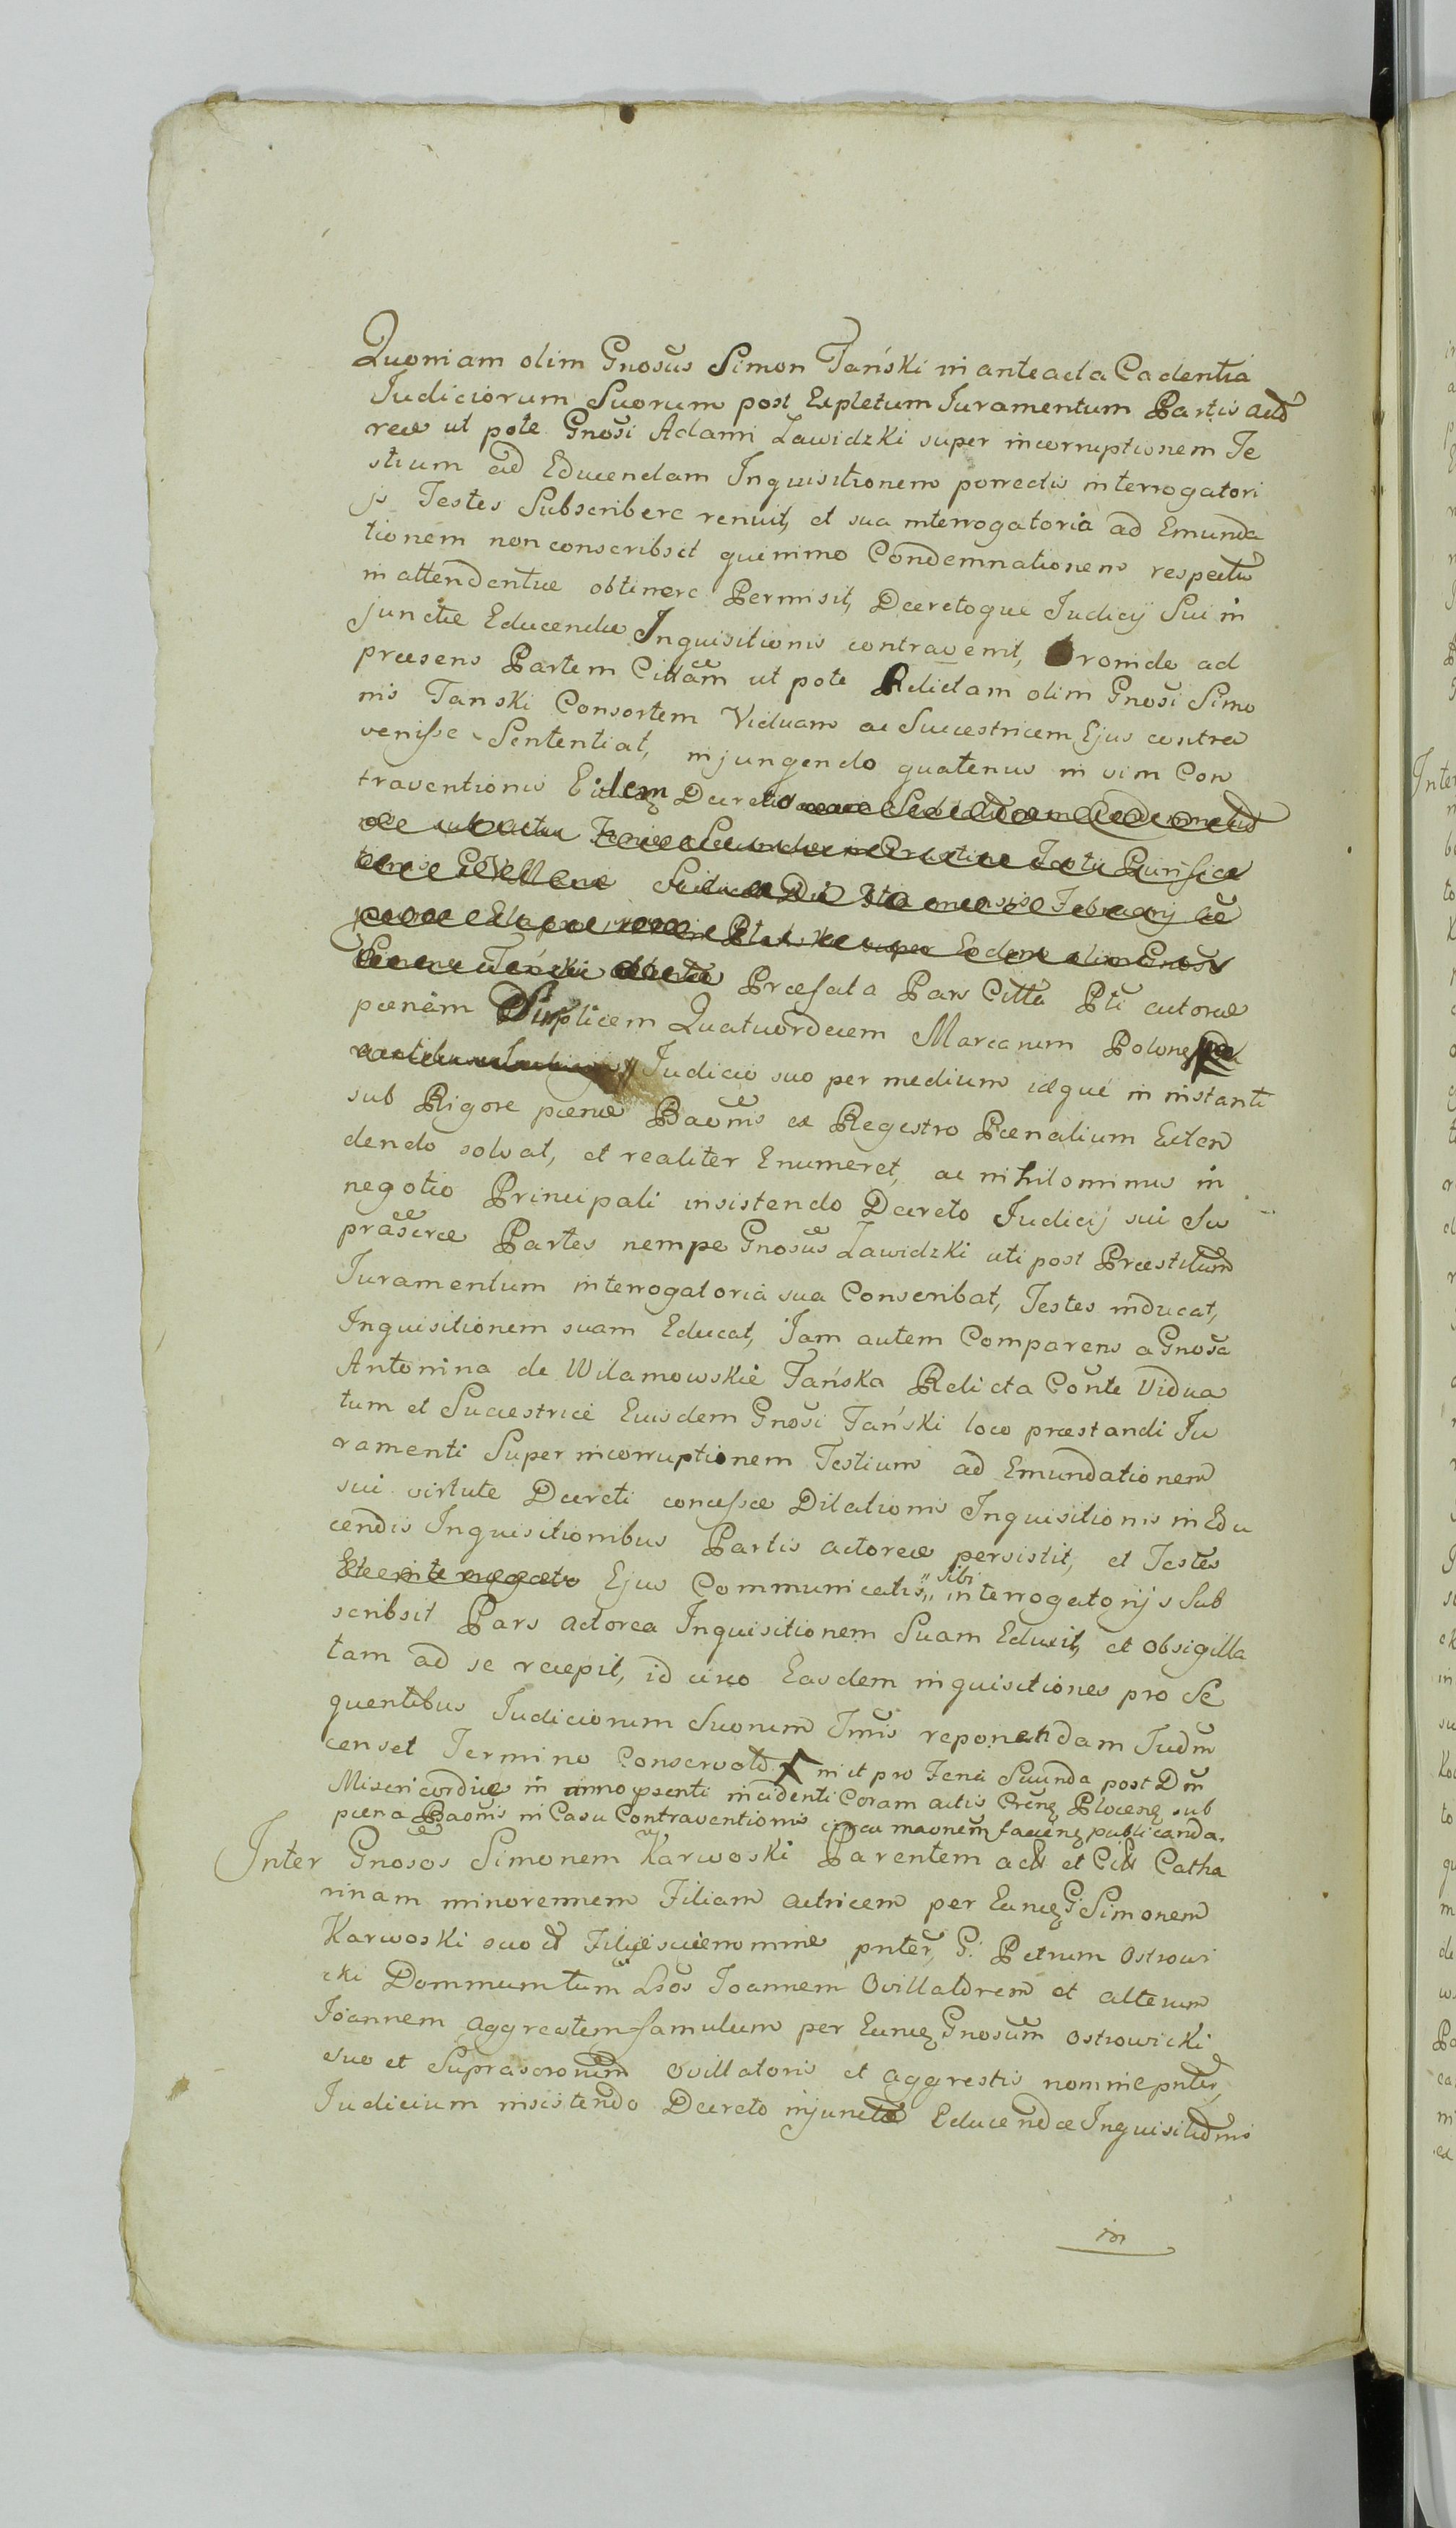 Quoniam olim Gnosus Simon Tański in anteacta Cadentia
Judiciorum Suorum post Expletum Juramentum Partis acto
reæ ut pote Gnosi Adami Zawidzki super incorruptionem Te
stium ad Educendam Inquisitionem porrectis interrogatori
js Testes Subscribere renuit, et sua interrogatoria ad Emunda
tionem non conscribsit quinimo Condemnationem respectu
inattendentiæ obtinere Permisit, Decretoque Judicij Sui in
junctæ Educendæ Inquisitionis contravenit, Proinde ad
præsens Partem Cittam ut pote Relictam olim Gnosi Simo
nis Tanski Consortem Viduam ac Successtricem Ejus contra
venisse Sententiat, injungendo quatenus in vim Con
traventionis Eidem Decreto
Feriæ Secundæ in Crastino Festi Purifica
tionis Februarij
super Eodem olim Gnoso
Simone Tański Præfata Pars Citta Pti actoreæ
pænam Duplicem Quatuordecem Marcarum Polon
Judicio suo per medium æque in instanti
sub Rigore pænæ Baomis ex Regestro Pænalium Exten
dendo solvat, et realiter Enumeret, ac nihilominus in
negotio Principali insistendo Decreto Judicij sui Su
prascræ Partes nempe Gnosus Zawidzki uti post Præstitum
Juramentum interrogatoria sua Conscribat, Testes inducat,
Inquisitionem suam Educat, Jam autem Comparens a Gnosa
Antonina de Wilamowskie Tańska Relicta Conte Vidua
tum et Successtrice Euisdem Gnosi Tański loco præstandi Ju
ramenti Super incorruptionem Testium ad Emundationem
sui virtute Decreti concessæ Dilationis Inquisitionis in Edu
cendis Inquisitionibus Partis actoreæ persistit, et Testes
Ejus Communicatis sibi interrogatorijs Sub
scribsit Pars actorea Inquisitionem Suam Eduxit, et obsigilla
tam ad se recepit, id circo Easdem inquisitiones pro Se
quentibus Judiciorum Suorum Tmis reponendam Judm
censet Termino Conservato in et pro Feria Secunda post Dm
Misericordiæ in anno psenti incidenti Coram actis Plocen sub
pæna Baomis in Casu Contraventionis circa publicanda.
Inter Gnosos Simonem Karwoski Parentem act et Citt Catha
rinam minorennem Filiam actricem per Eund G. Simonem
Karwoski suo et Filiæ suæ nomine pnter, G. Petrum Ostrowi
cki Dominum tum Lsos Joannem Ovillatorem et alterum
Joannem aggrestem famulum per Eund Gnosum Ostrowicki
suo et Suprascrorum Ovillatoris et aggrestis nomine pnter,
Judicium insistendo Decreto injunctæ Educendæ Inquisitionis
in